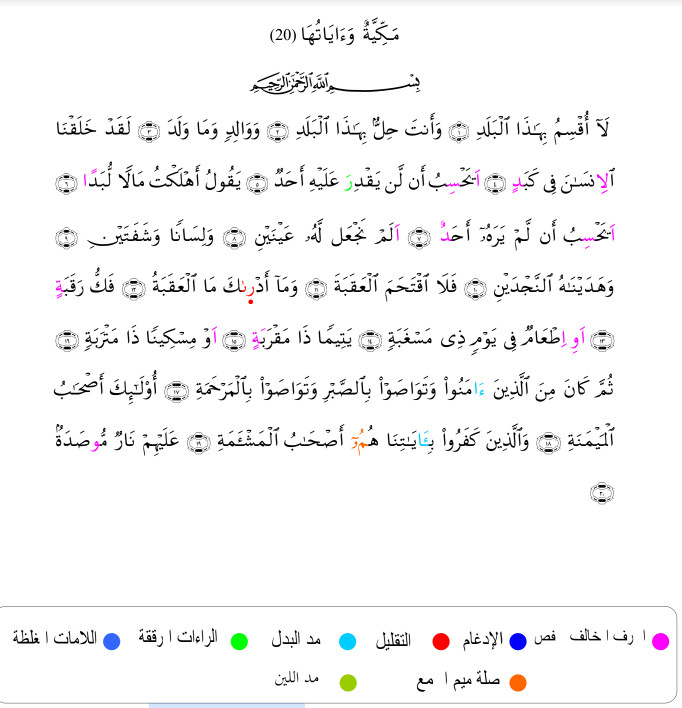 مَكِّيَّةٌ وَءَايَاتُهَا (20)
بِسْمِ اللَّهِ الرَّحْمَٰنِ الرَّحِيمِ
لَآ أُقْسِمُ بِهَٰذَا اَ۬لْبَلَدِ ١ وَأَنتَ حِلُّۢ بِهَٰذَا اَ۬لْبَلَدِ ٢ وَوَالِدٖ وَمَا وَلَدَ ٣ لَقَدْ خَلَقْنَا
اَ۬لِانسَٰنَ فِي كَبَدٍ ٤ اَيَحْسِبُ أَن لَّن يَقْدِرَ عَلَيْهِ أَحَدٞ ٥ يَقُولُ أَهْلَكْتُ مَالٗا لُّبَدًا ٦
اَيَحْسِبُ أَن لَّمْ يَرَهُۥٓ أَحَدٌ ٧ اَلَمْ نَجْعَل لَّهُۥ عَيْنَيْنِ ٨ وَلِسَانٗا وَشَفَتَيْنِ ٩
وَهَدَيْنَٰهُ اُ۬لنَّجْدَيْنِ ١٠ فَلَا اَ۪قْتَحَمَ اَ۬لْعَقَبَةَ ١١ وَمَآ أَدْر۪ىٰكَ مَا اَ۬لْعَقَبَةُ ١٢ فَكُّ رَقَبَةٍ
١٣ اَوِ اِطْعَٰمٞ فِي يَوْمٖ ذِي مَسْغَبَةٖ ١٤ يَتِيمٗا ذَا مَقْرَبَةٍ ١٥ اَوْ مِسْكِينٗا ذَا مَتْرَبَةٖ ١٦
ثُمَّ كَانَ مِنَ اَ۬لذِينَ ءَامَنُواْ وَتَوَاصَوْاْ بِالصَّبْرِ وَتَوَاصَوْاْ بِالْمَرْحَمَةِ ١٧ أُوْلَٰٓئِكَ أَصْحَٰبُ
اُ۬لْمَيْمَنَةِ ١٨ وَالذِينَ كَفَرُواْ بِـَٔايَٰتِنَا هُمُۥٓ أَصْحَٰبُ اُ۬لْمَشْـَٔمَةِ ١٩ عَلَيْهِمْ نَارٞ مُّوصَدَةُۢ
٢٠
ا رف ا خالف فص الإدغام التقليل مد البدل الراءات ا رققة اللامات ا غلظة
صلة ميم ا مع مد اللين